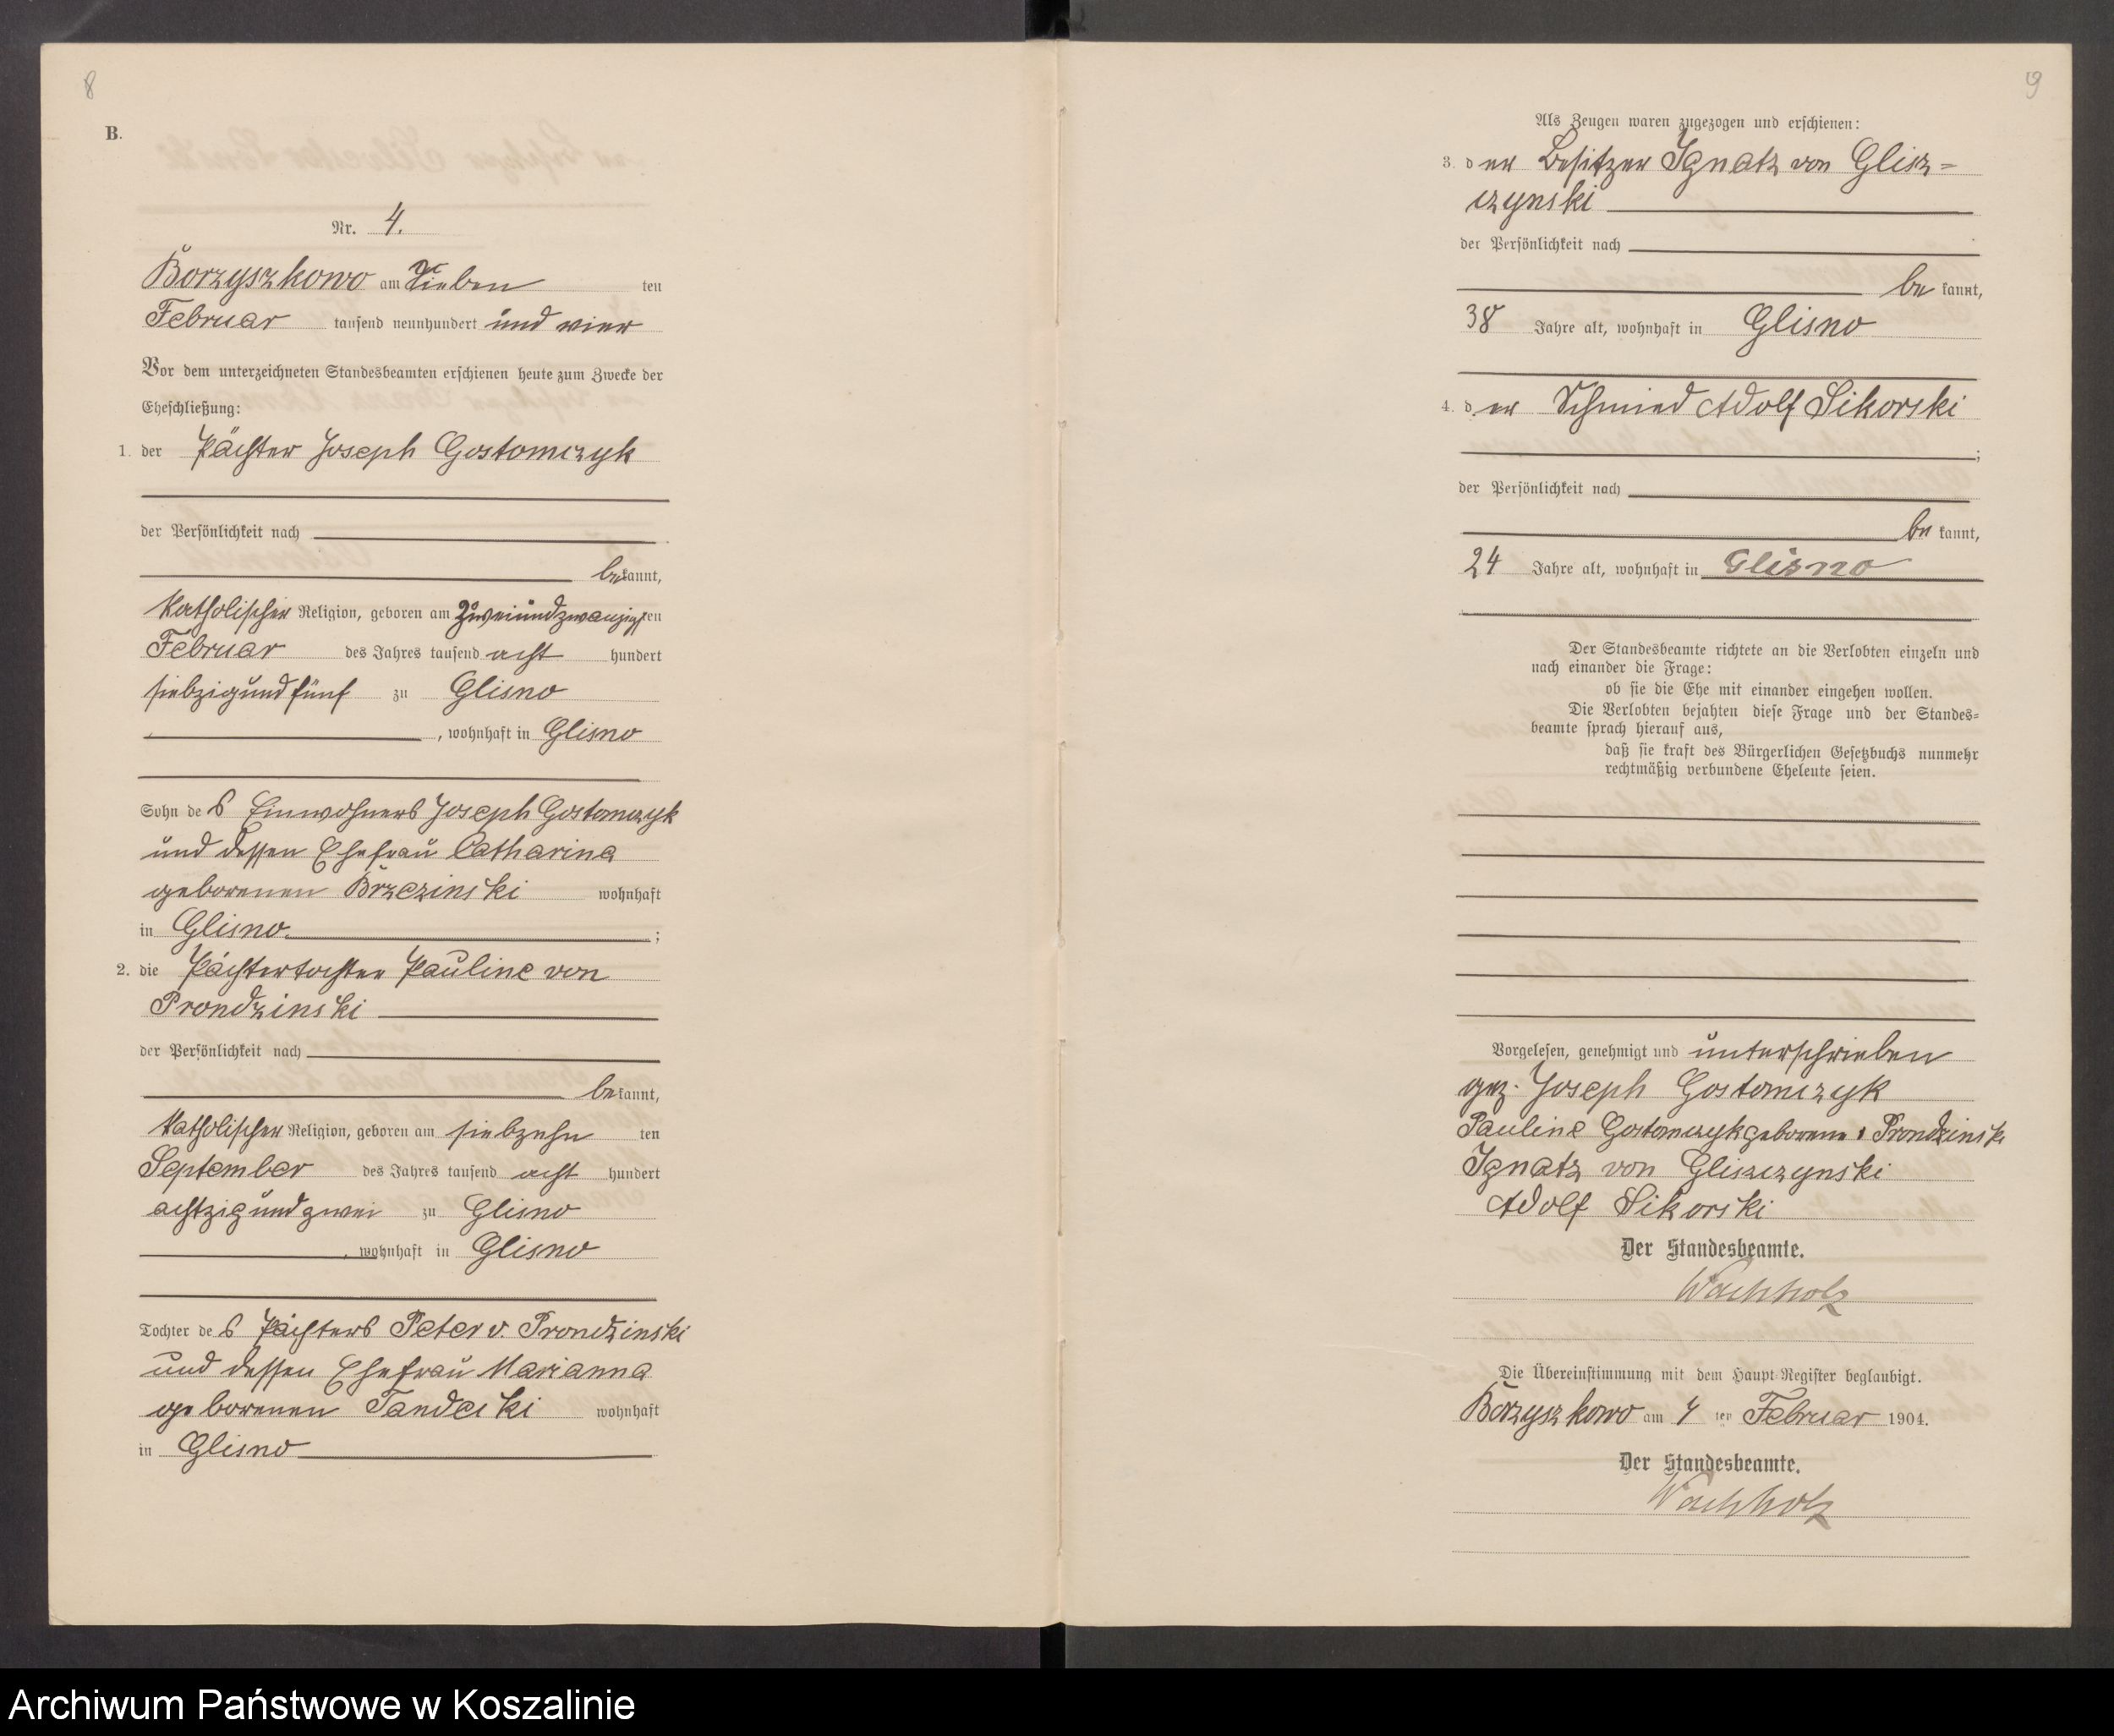 8
B.
Nr. 4.
Borzyszkowo am Sieben ten
Februar tausend neunhundert und vier
Vor dem unterzeichneten Standesbeamten erschienen heute zum Zwecke der
Eheschließung:
1. der Pächter Joseph Gostomczyk
der Persönlichkeit nach
be kannt,
Katholischer Religion, geboren am zweiundzwanzigsten
Februar des Jahres tausend acht hundert
siebzigundfünf zu Glisno
, wohnhaft in Glisno
Sohn des Einwohners Joseph Gostomczyk
und dessen Ehefrau Catharina
geborenen Brzezinski wohnhaft
in Glisno. ;
2. die Pächtertochter Pauline von
Prondzinski
der Persönlichkeit nach
be kannt,
Katholischer Religion, geboren am siebzehn ten
September des Jahres tausend acht hundert
achtzigundzwei zu Glisno
, wohnhaft in Glisno
Tochter des Pächters Peter v. Prondzinski
und dessen Ehefrau Marianna
geborenen Tandecki wohnhaft
in Glisno
9
Als Zeugen waren zugezogen und erschienen:
3. der Besitzer Ignatz von Glisz=
czynski
der Persönlichkeit nach
be kannt,
38 Jahre alt, wohnhaft in Glisno
4. der Schmied Adolf Sikorski
;
der Persönlichkeit nach
be kannt,
24 Jahre alt, wohnhaft in Glisno
Der Standesbeamte richtete an die Verlobten einzeln und
nach einander die Frage:
ob sie die Ehe mit einander eingehen wollen.
Die Verlobten bejahten diese Frage und der Standes=
beamte sprach hierauf aus,
daß sie kraft des Bürgerlichen Gesetzbuchs nunmehr
rechtmäßig verbundene Eheleute seien.
Vorgelesen, genehmigt und unterschrieben
gez. Joseph Gostomczyk
Pauline Gostomczyk geborene v Prondzinski
Ignatz von Gliszczynski
Adolf Sikorski
Der Standesbeamte.
Wachholz
Die Übereinstimmung mit dem Haupt-Register beglaubigt.
Borzyszkowo am 7 ten Februar 1904.
Der Standesbeamte.
Wachholz
Archiwum Państwowe w Koszalinie